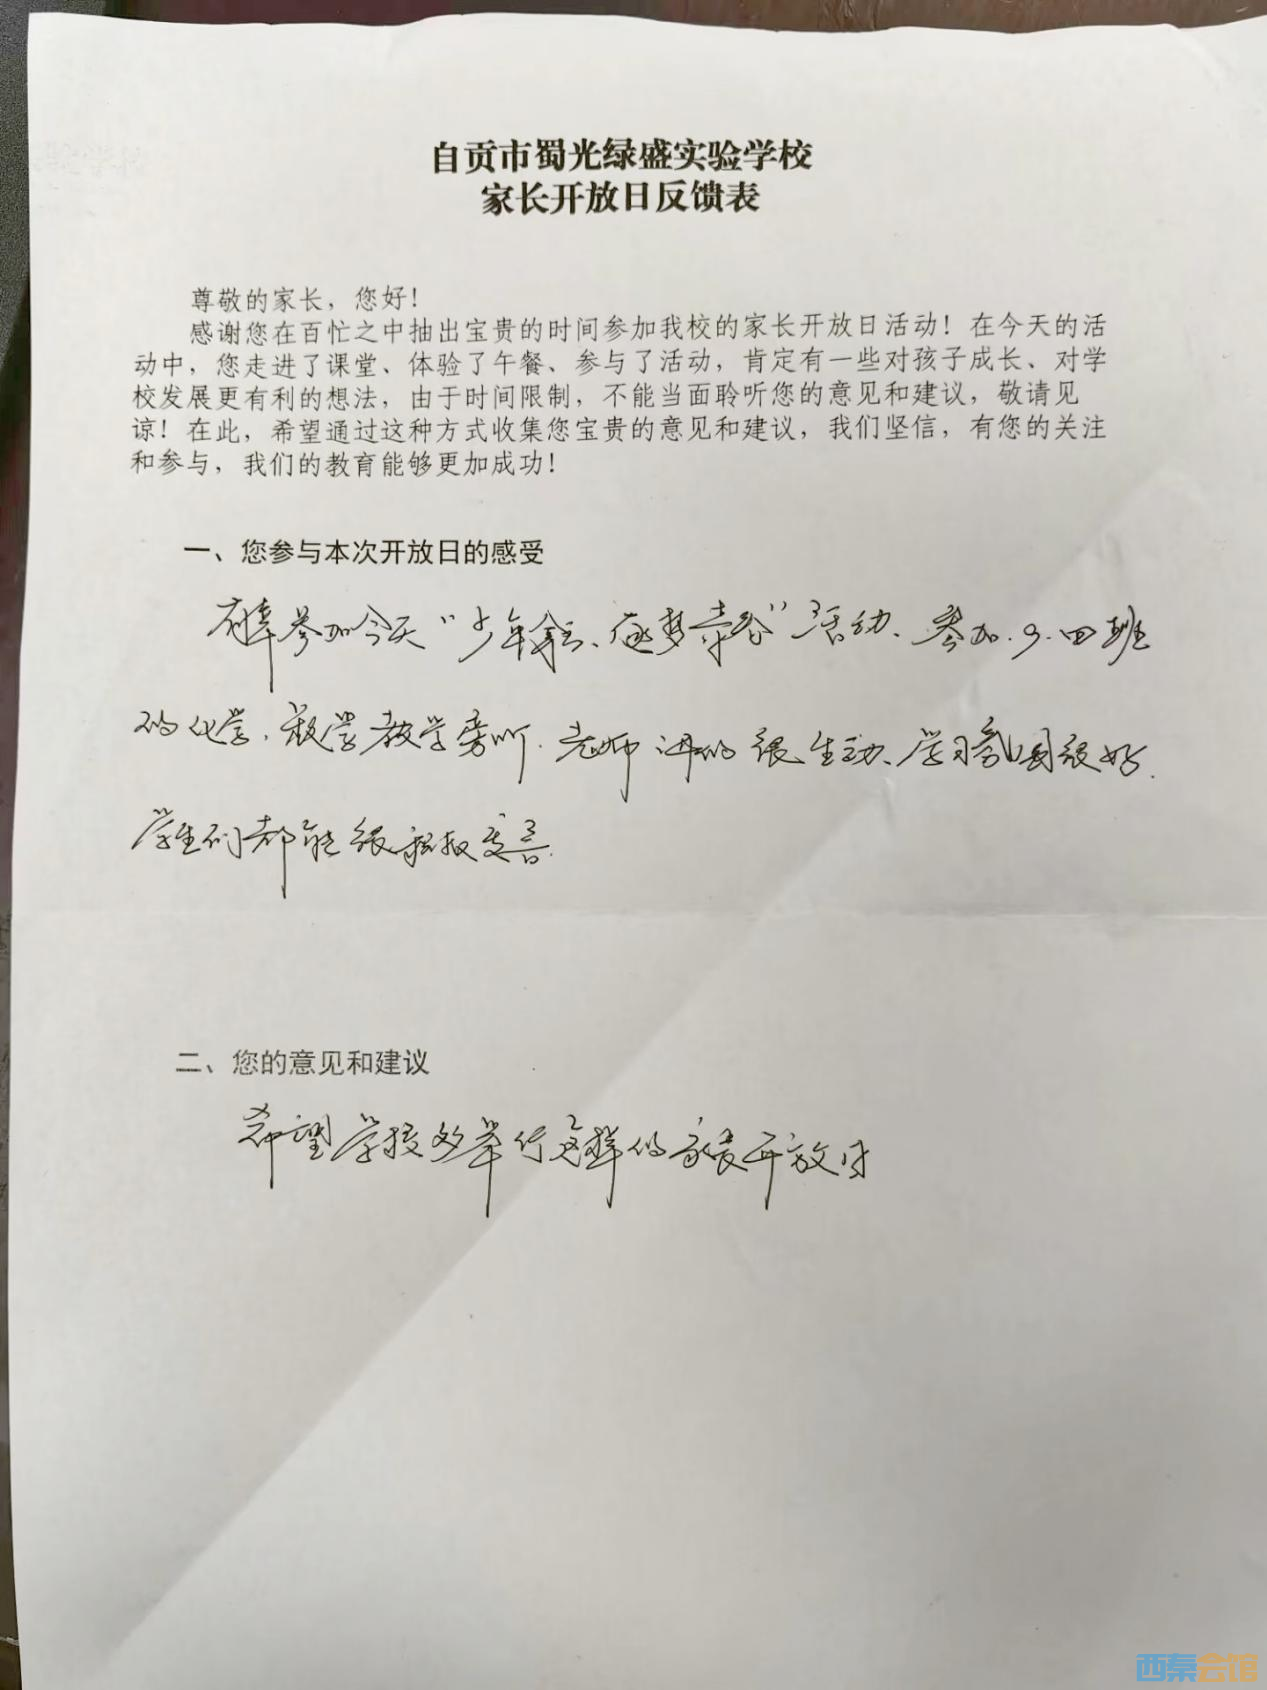 自贡市蜀光绿盛实验学校
家长开放日反馈表
尊敬的家长，您好！
感谢您在百忙之中抽出宝贵的时间参加我校的家长开放日活动！在今天的活
动中，您走进了课堂、体验了午餐、参与了活动，肯定有一些对孩子成长、对学
校发展更有利的想法，由于时间限制，不能当面聆听您的意见和建议，敬请见
谅！在此，希望通过这种方式收集您宝贵的意见和建议，我们坚信，有您的关注
和参与，我们的教育能够更加成功！
一、您参与本次开放日的感受
参加今天“少年”活动、参加.9.四班
的化学，数学教学旁听.老师讲的很生动、学习氛围很好.
学生们都能很积极发言.
二、您的意见和建议
希望学校多举行这样的家长开放日
西秦会馆